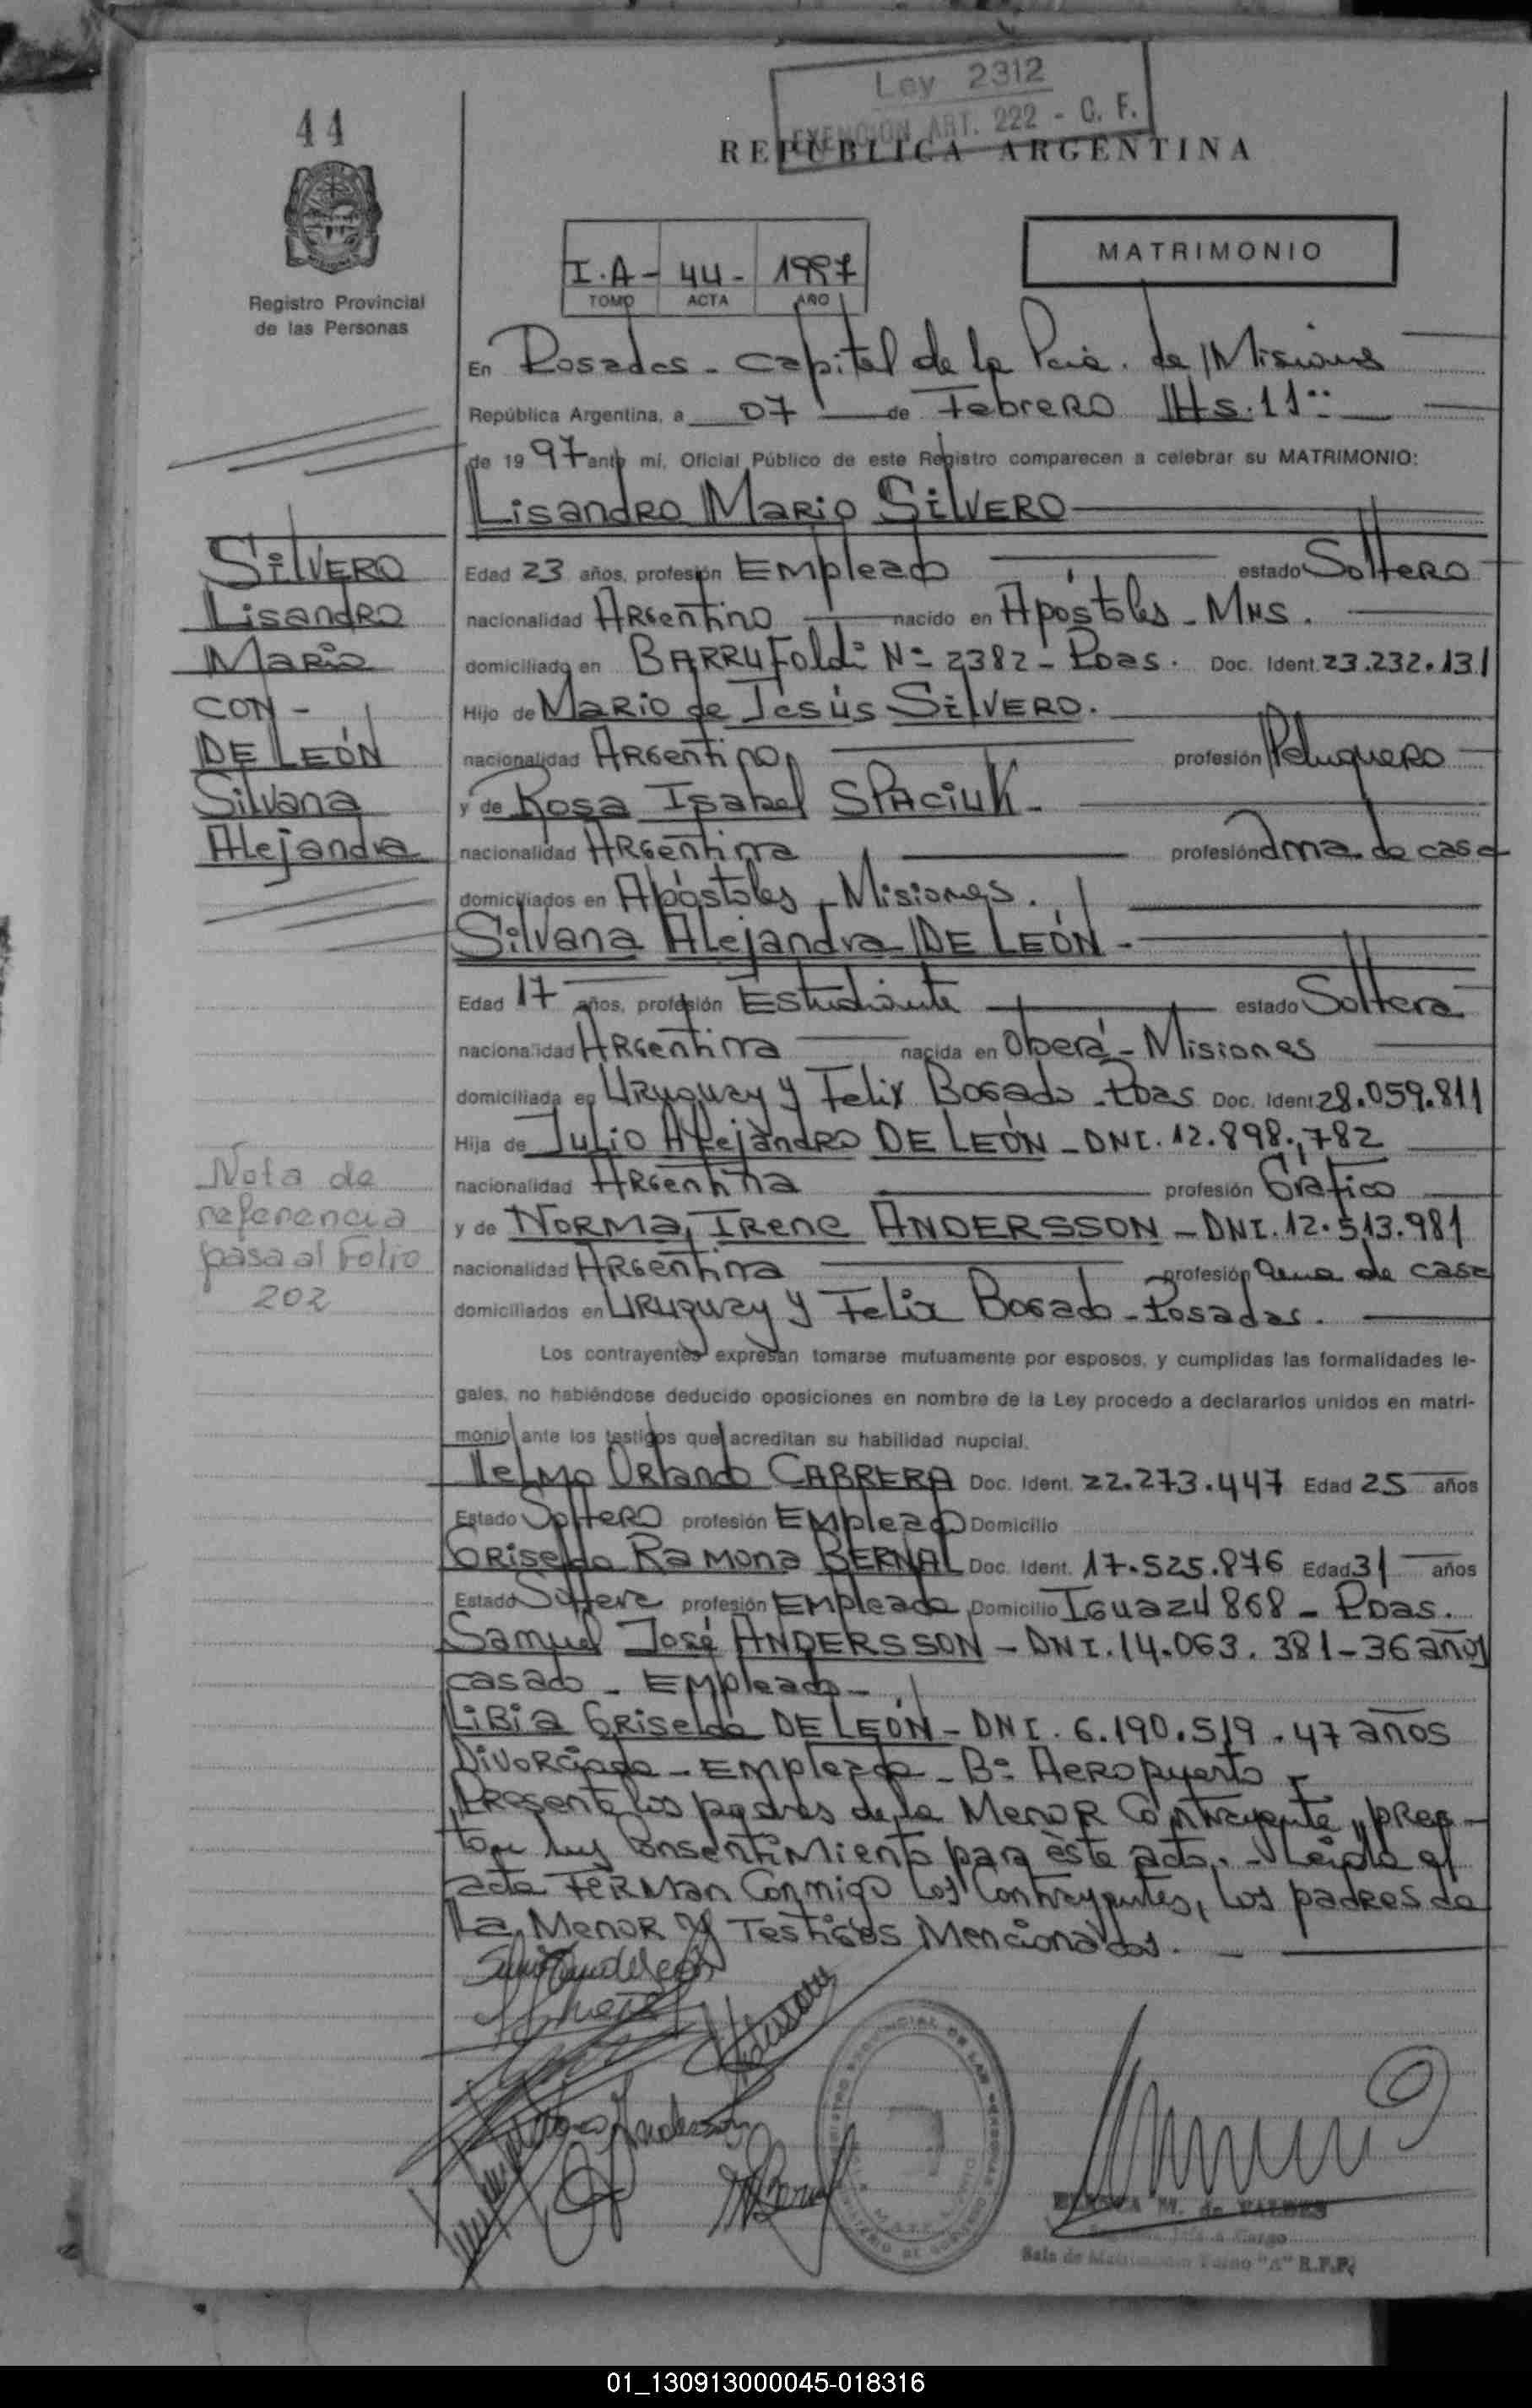 Ley 2312
EXENCION ART. 222 - C. F.
44
REPUBLICA ARGENTINA
MATRIMONIO
I.A - 44 - 1997
TOMO ACTA AÑO
Registro Provincial
de las Personas
En Posadas - Capital de la Pcia. de Misiones
República Argentina, a 07 de Febrero Hs. 11
de 1997 ante mi, Oficial Público de este Registro comparecen a celebrar su MATRIMONIO:
Lisandro Mario SILVERO
SILVERO
Lisandro
Mario
CON -
DE LEÓN
Silvana
Alejandra
Edad 23 años, profesión Empleado estado Soltero
nacionalidad Argentino nacido en Apóstoles - Mns.
domiciliado en BARRUFoldi Nº 2382 - Pdas. Doc. Ident. 23.232.131
Hijo de Mario de Jesús SILVERO.
nacionalidad Argentino profesión Peluquero
y de Rosa Isabel SPACIUK -
nacionalidad Argentina profesión Ama de casa
domiciliados en Apóstoles - Misiones.
Silvana Alejandra DE LEÓN -
Edad 17 años, profesión Estudiante estado Soltera
nacionalidad Argentina nacida en Oberá - Misiones
domiciliada en Uruguay y Felix Bogado - Pdas Doc. Ident 28.059.811
Hija de Julio Alejandro DE LEÓN - DNI. 12.898.782
nacionalidad Argentina profesión Gráfico
y de Norma Irene ANDERSSON - DNI. 12.513.981
nacionalidad Argentina profesión Ama de casa
domiciliados en Uruguay y Felix Bogado - Posadas.
Nota de
referencia
pasa al Folio
202
Los contrayentes expresan tomarse mutuamente por esposos, y cumplidas las formalidades le-
gales, no habiéndose deducido oposiciones en nombre de la Ley procedo a declararlos unidos en matri-
monio ante los testigos que acreditan su habilidad nupcial.
Telmo Orlando CABRERA Doc. Ident. 22.273.447 Edad 25 años
Estado Soltero profesión Empleado Domicilio
Griselda Ramona BERNAL Doc. Ident. 17.525.876 Edad 31 años
Estado Soltera profesión Empleada Domicilio Iguazú 868 - Pdas.
Samuel José ANDERSSON - DNI. 14.063.381 - 36 años
casado - Empleado -
Libia Griselda DE LEÓN - DNI. 6.190.519 - 47 años
Divorciada - Empleada - Bº Aeropuerto -
Presente los padres de la Menor Contrayente, pres-
tan su Consentimiento para éste acto. - Leída el
acta Ferman Conmigo Los Contrayentes, los padres de
La Menor y Testigos Mencionados.
M. de VALDES
Jefa a Cargo
Sala de Matrimonios Turno "A" R.P.P.
01_130913000045-018316